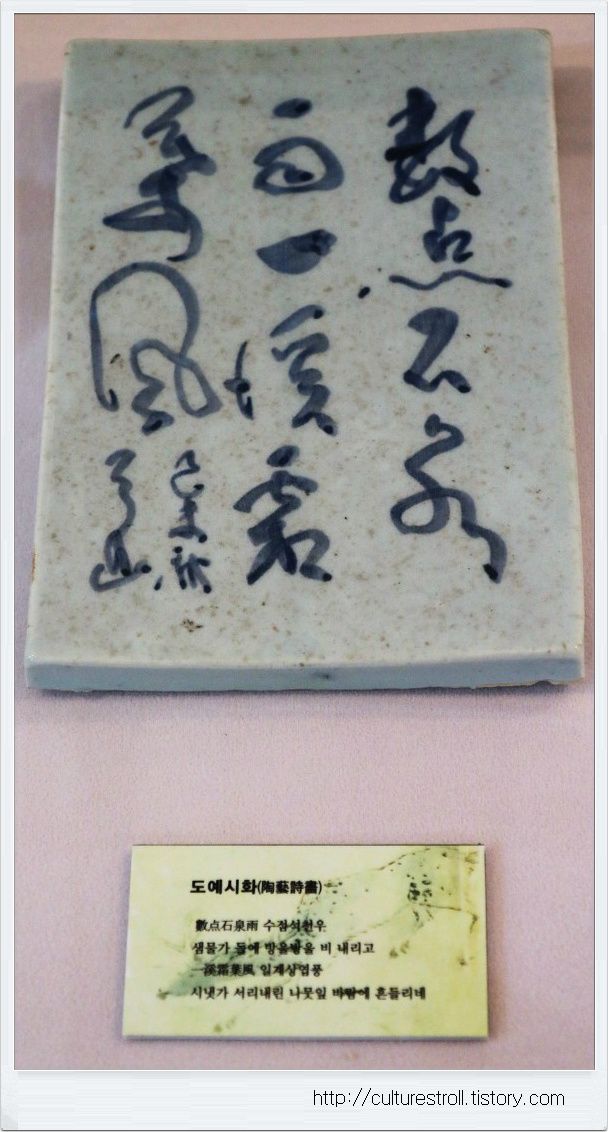 數点石泉
雨一溪霜
葉風
己未秋
도예시화(陶藝詩畵)
數点石泉雨 수점석천우
샘물가 돌에 방울방울 비 내리고
一溪霜葉風 일계상엽풍
시냇가 서리내린 나뭇잎 바람에 흔들리네
http://culturestroll.tistory.com